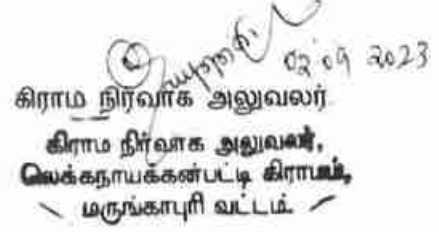 02 09 2023
கிராம நிர்வாக அலுவலர்
கிராம நிர்வாக அலுவலர்,
லெக்கநாயக்கன்பட்டி கிராமம்,
மருங்காபுரி வட்டம்.